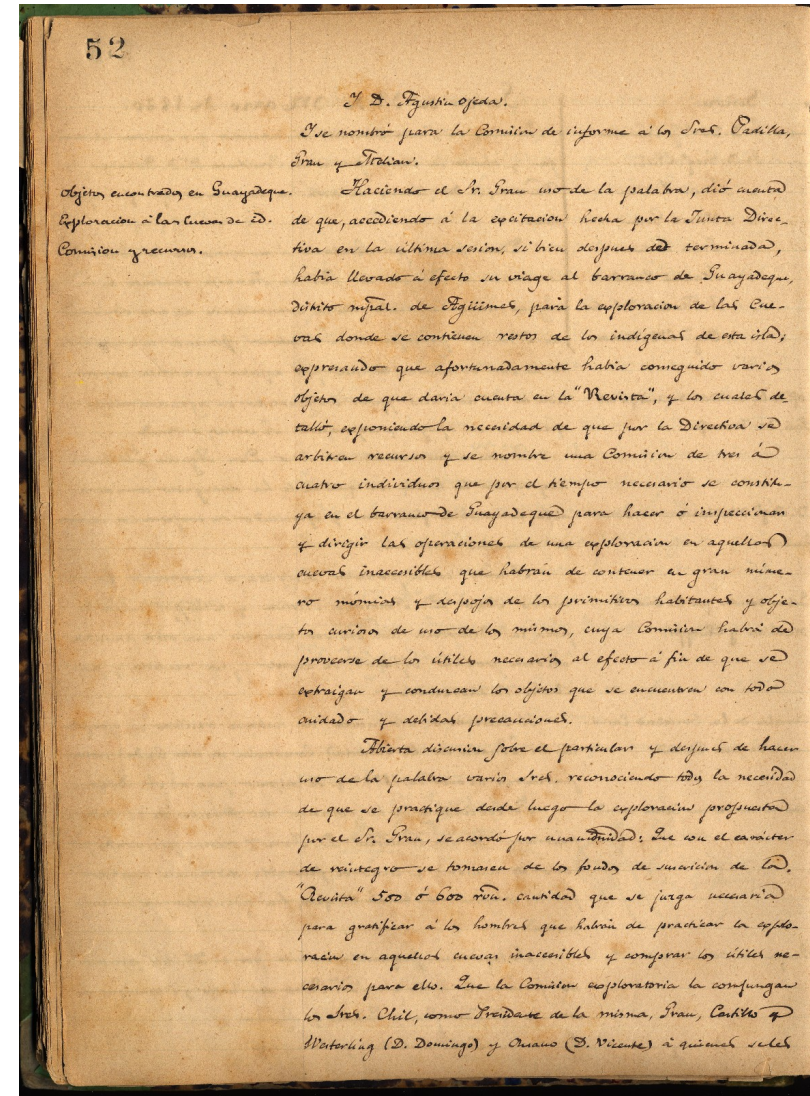 52
Y D. Agustin Ojeda.
Y se nombró para la Comision de informe á los Sres. Padilla,
Grau y
Objetos encontrados en Guayadeque.
Exploracion á las Cuevas de id.
Comision y recursos.
Haciendo el Sr. Grau uso de la palabra, dió cuenta
de que, accediendo á la excitacion hecha por la Junta Direc-
tiva en la última sesion, si bien despues de terminada,
habia llevado á efecto su viage al barranco de Guayadeque,
distrito mpal. de Agüimes, para la exploracion de las Cue-
vas donde se contienen restos de los indígenas de esta isla;
expresando que afortunadamente habia conseguido varios
objetos de que daria cuenta en la "Revista", y los cuales de-
talló, exponiendo la necesidad de que por la Directiva se
arbitren recursos y se nombre una Comision de tres á
cuatro individuos que por el tiempo necesario se constitu-
ya en el barranco de Guayadeque para hacer ó inspeccionar
y dirigir las operaciones de una exploracion en aquellas
cuevas inaccesibles que habrán de contener en gran núme-
ro mómias y despojos de los primitivos habitantes y obje-
tos curiosos de uso de los mismos, cuya Comision habrá de
proveerse de los útiles necesarios al efecto á fin de que se
extraigan y conduzcan los objetos que se encuentren con todo
cuidado y debidas precauciones.
Abierta discusion sobre el particular y despues de hacer
uso de la palabra varios Sres. reconociendo todos la necesidad
de que se practique desde luego la exploracion propuesta
por el Sr. Grau, se acordó por unanimidad: Que con el carácter
de reintegro se tomasen de los fondos de suscricion de la
"Revista" 500 ó 600 rvn. cantidad que se juzga necesaria
para gratificar á los hombres que habrán de practicar la explo-
racion en aquellas cuevas inaccesibles y comprar los útiles ne-
cesarios para ello. Que la Comision exploratoria la compongan
los Sres. Chil, como Presidente de la misma, Grau, Castillo y
Westerling (D. Domingo) y (D. Vicente) á quienes se les